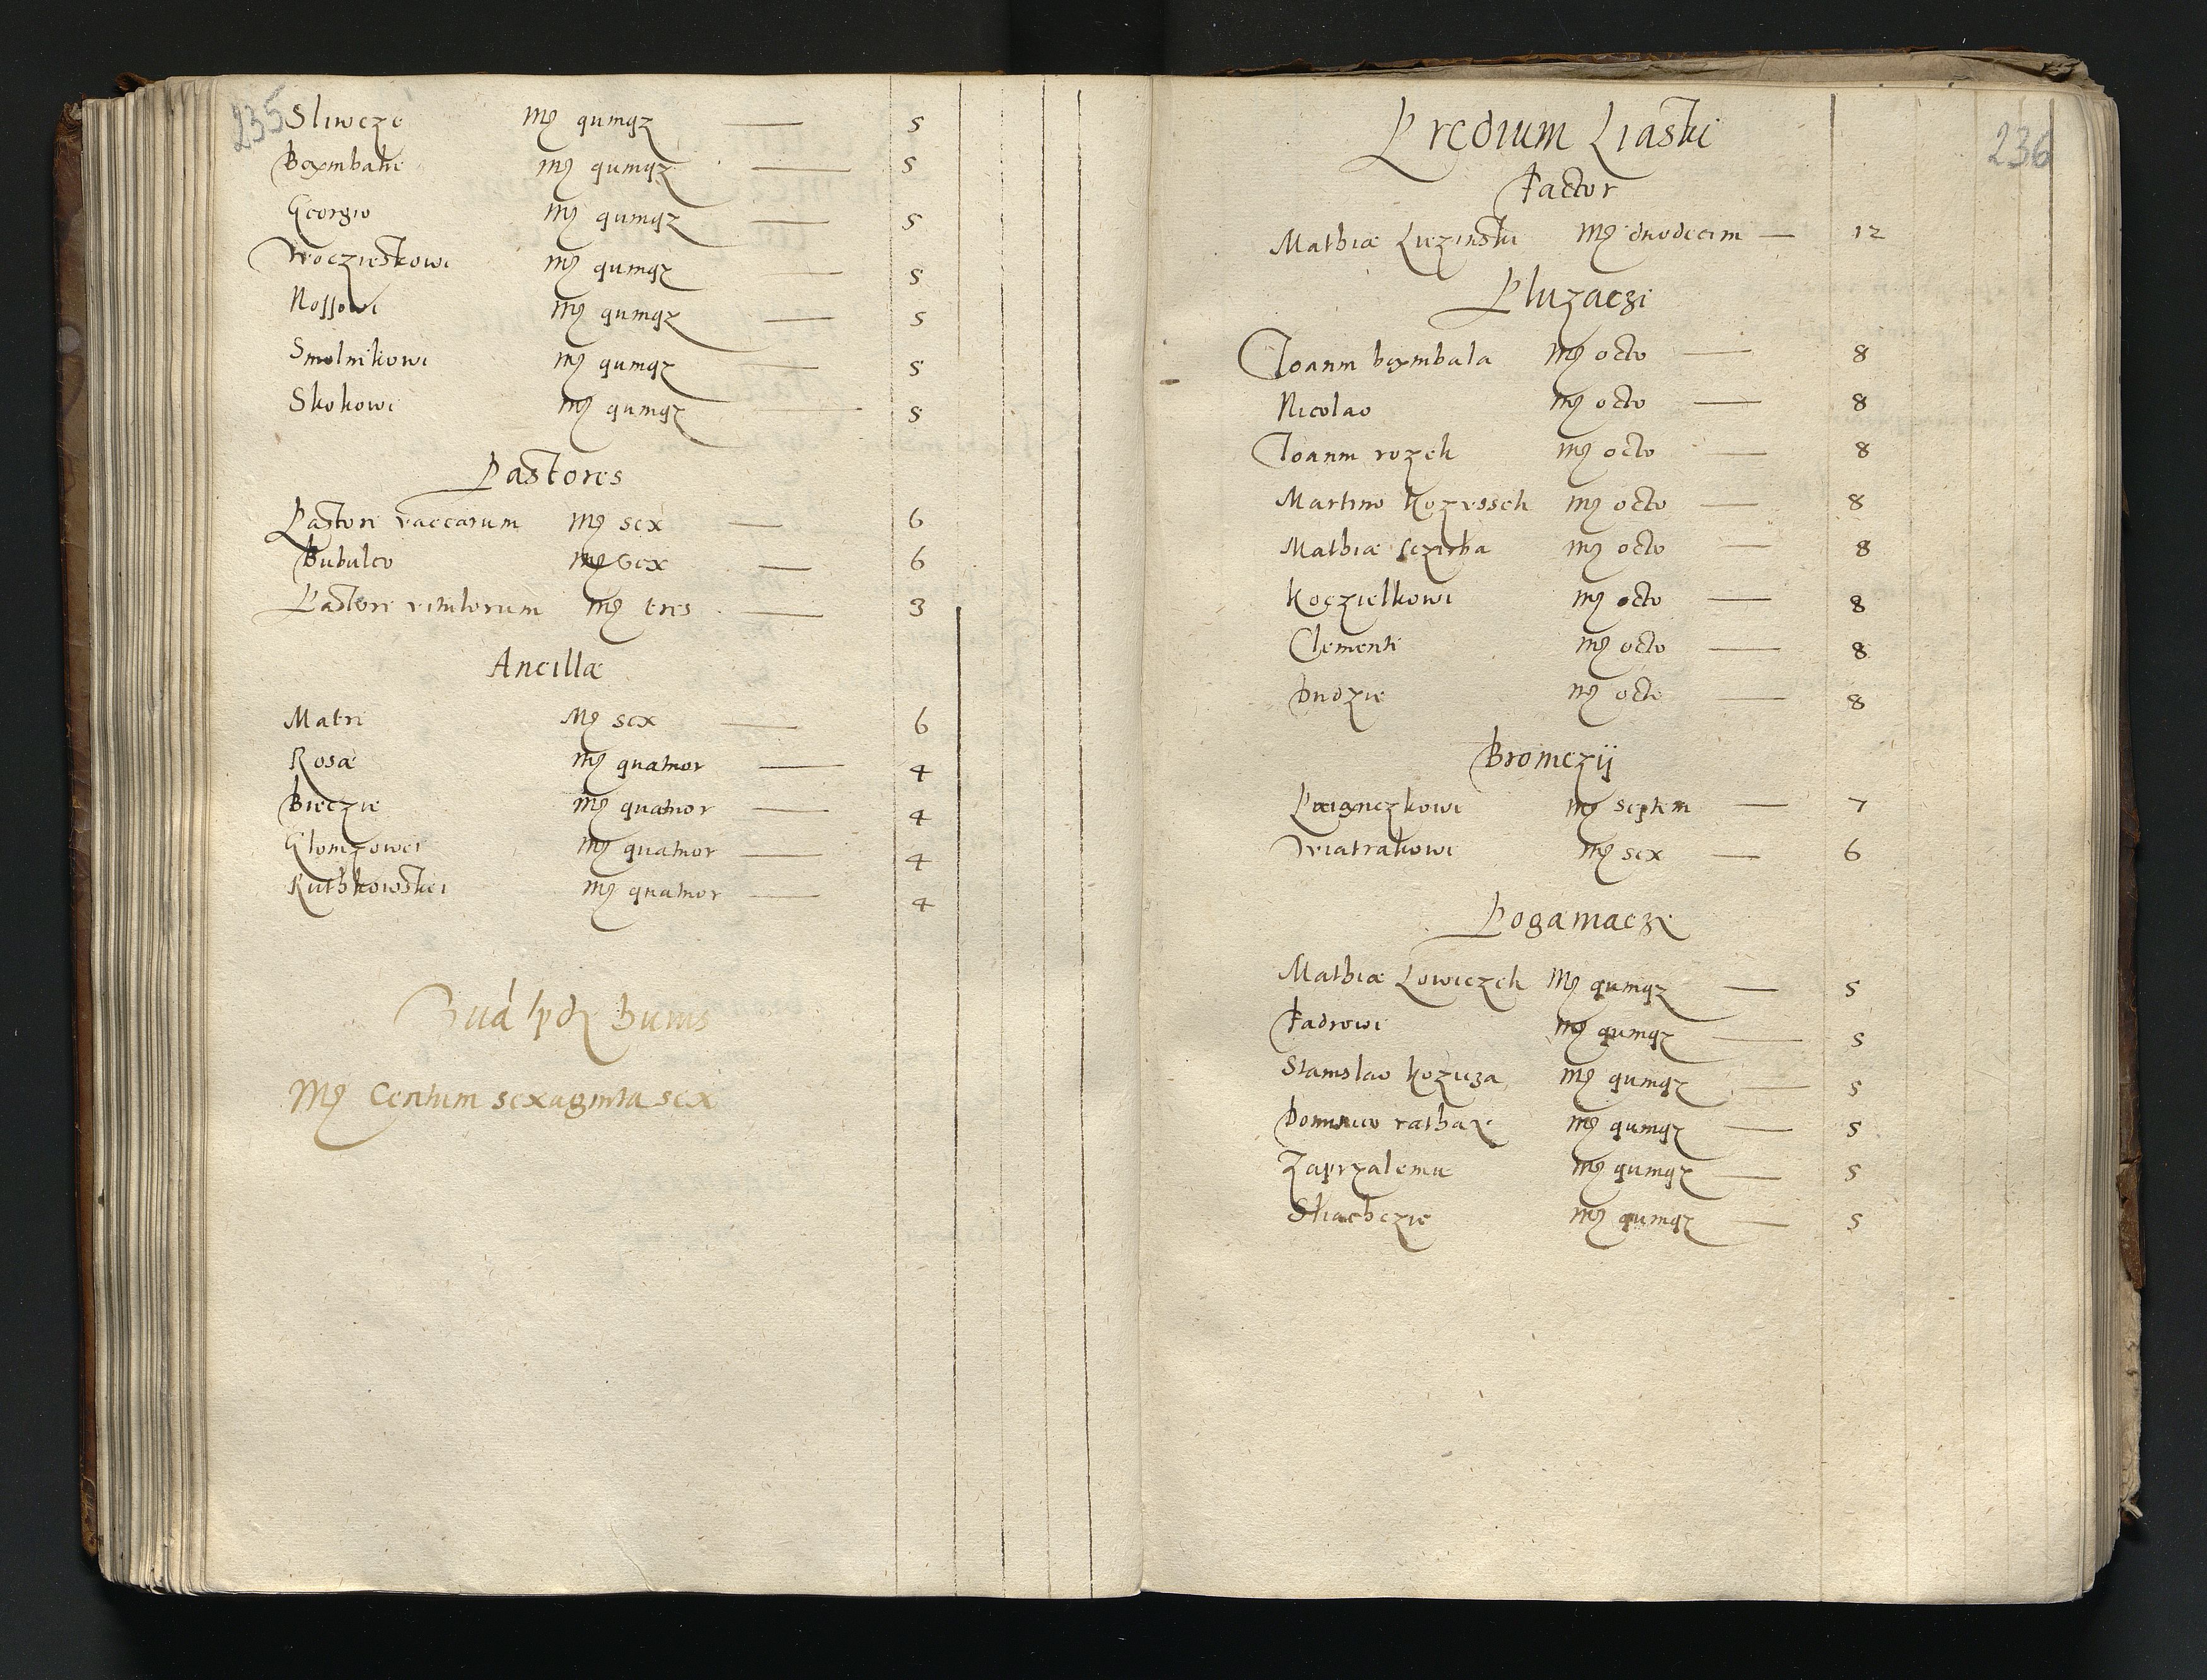 235
Sliwcze Mg quinqz — 5
Bęmbali Mg quinqz — 5
Georgio Mg quinqz — 5
Woczieskowi Mg quinqz — 5
Nossowi Mg quinqz — 5
Smolnikowi Mg quinqz — 5
Skokowi Mg quinqz — 5
Pastores
Pastori vaccarum Mg sex — 6
Bubulco Mg sex — 6
Pastori vitulorum Mg tres — 3
Ancillæ
Matri Mg sex — 6
Rosæ Mg quatuor — 4
Bieczie Mg quatuor — 4
Glomzowei Mg quatuor — 4
Ruthkowskiei Mg quatuor — 4
Mg Centum sexaginta sex
236
Predium Liaski
Factor
Mathiæ Liczinski Mg duodecim — 12
Pluzaczi
Joanni bęmbala Mg octo — 8
Nicolao Mg octo — 8
Joanni rozek Mg octo — 8
Martino kozyssek Mg octo — 8
Mathiæ sczirba Mg octo — 8
Koczielkowi Mg octo — 8
Clementi Mg octo — 8
Dudzie Mg octo — 8
Broniczij
Mg septem — 7
Wiatrakowi Mg sex — 6
Poganiacze
Mathiæ Lowiczek Mg quinqz — 5
Fadrowi Mg quinqz — 5
Stanislao kozuza Mg quinqz — 5
Dominico rathaz Mg quinqz — 5
Zaprzalemu Mg quinqz — 5
Stachczie Mg quinqz — 5